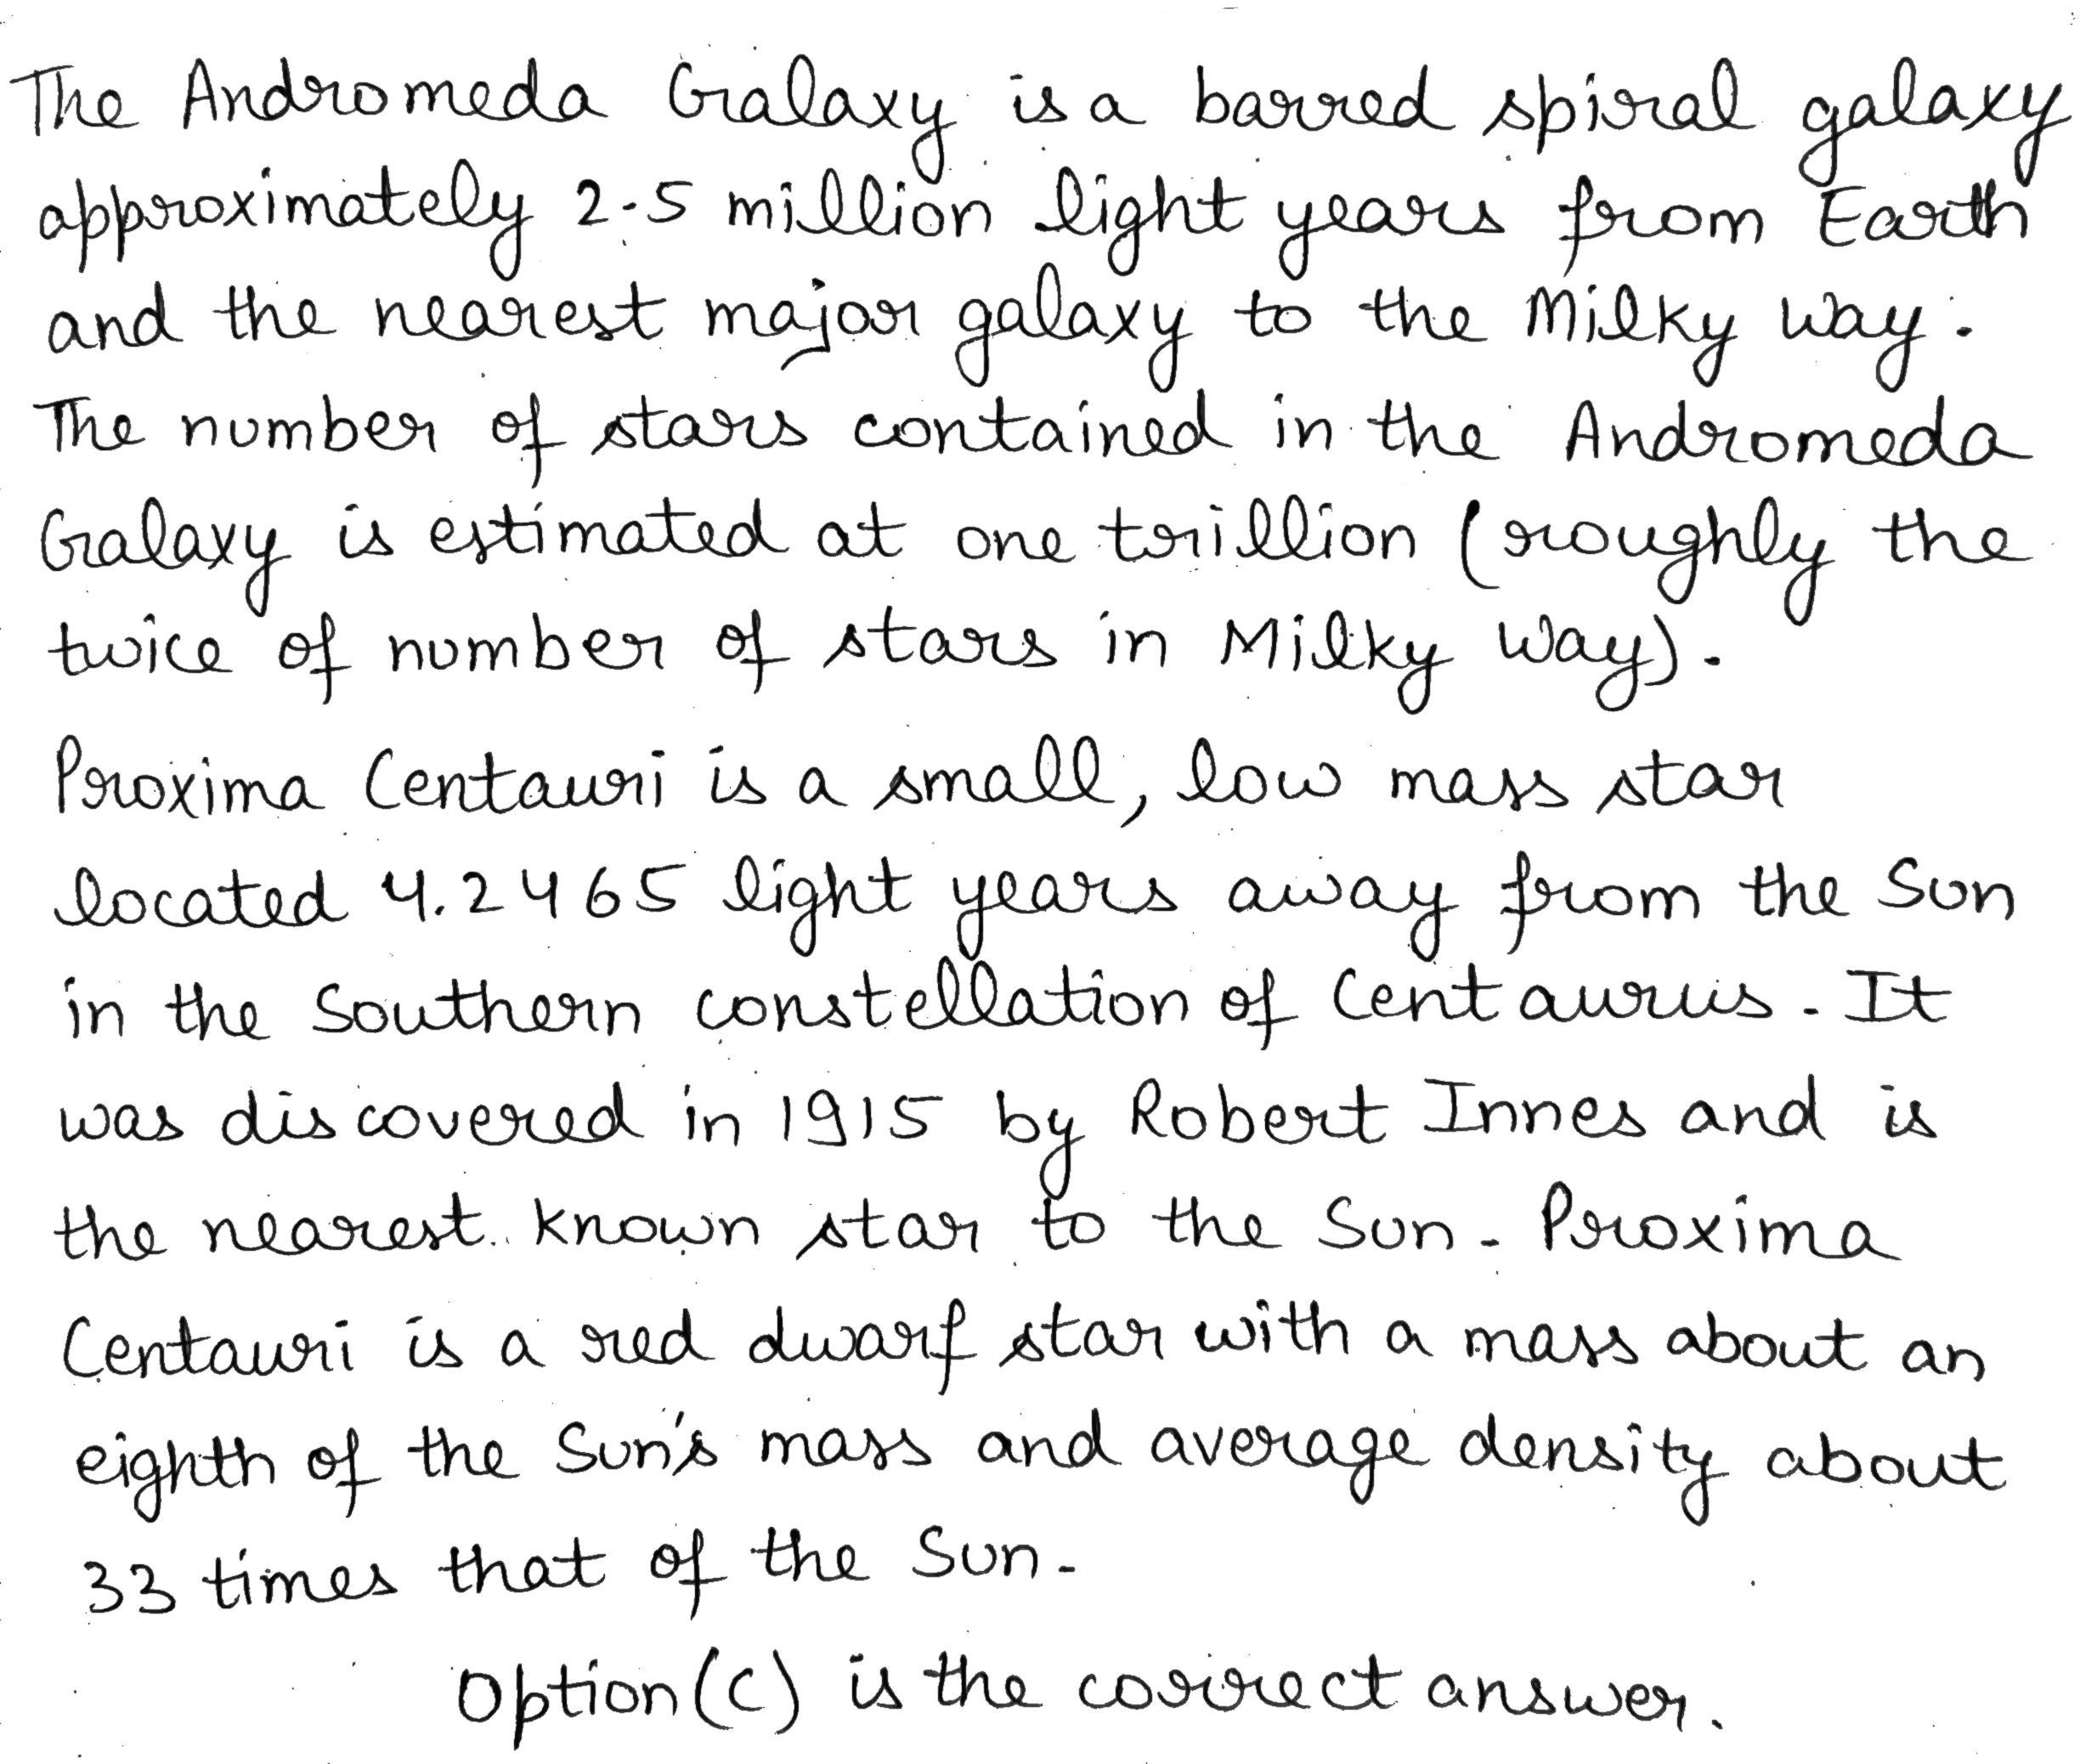 The Andromeda Galaxy is a barred spiral galaxy
approximately 2.5 million light years from Earth
and the nearest major galaxy to the Milky Way.
The number of stars contained in the Andromeda
Galaxy is estimated at one trillion (roughly the
twice of number of stars in Milky Way).
Proxima Centauri is a small, low mass star
located 4.2465 light years away from the Sun
in the Southern constellation of Centaurus. It
was discovered in 1915 by Robert Innes and is
the nearest known star to the Sun. Proxima
Centauri is a red dwarf star with a mass about an
eighth of the Sun's mass and average density about
33 times that of the Sun.
Option (C) is the correct answer.